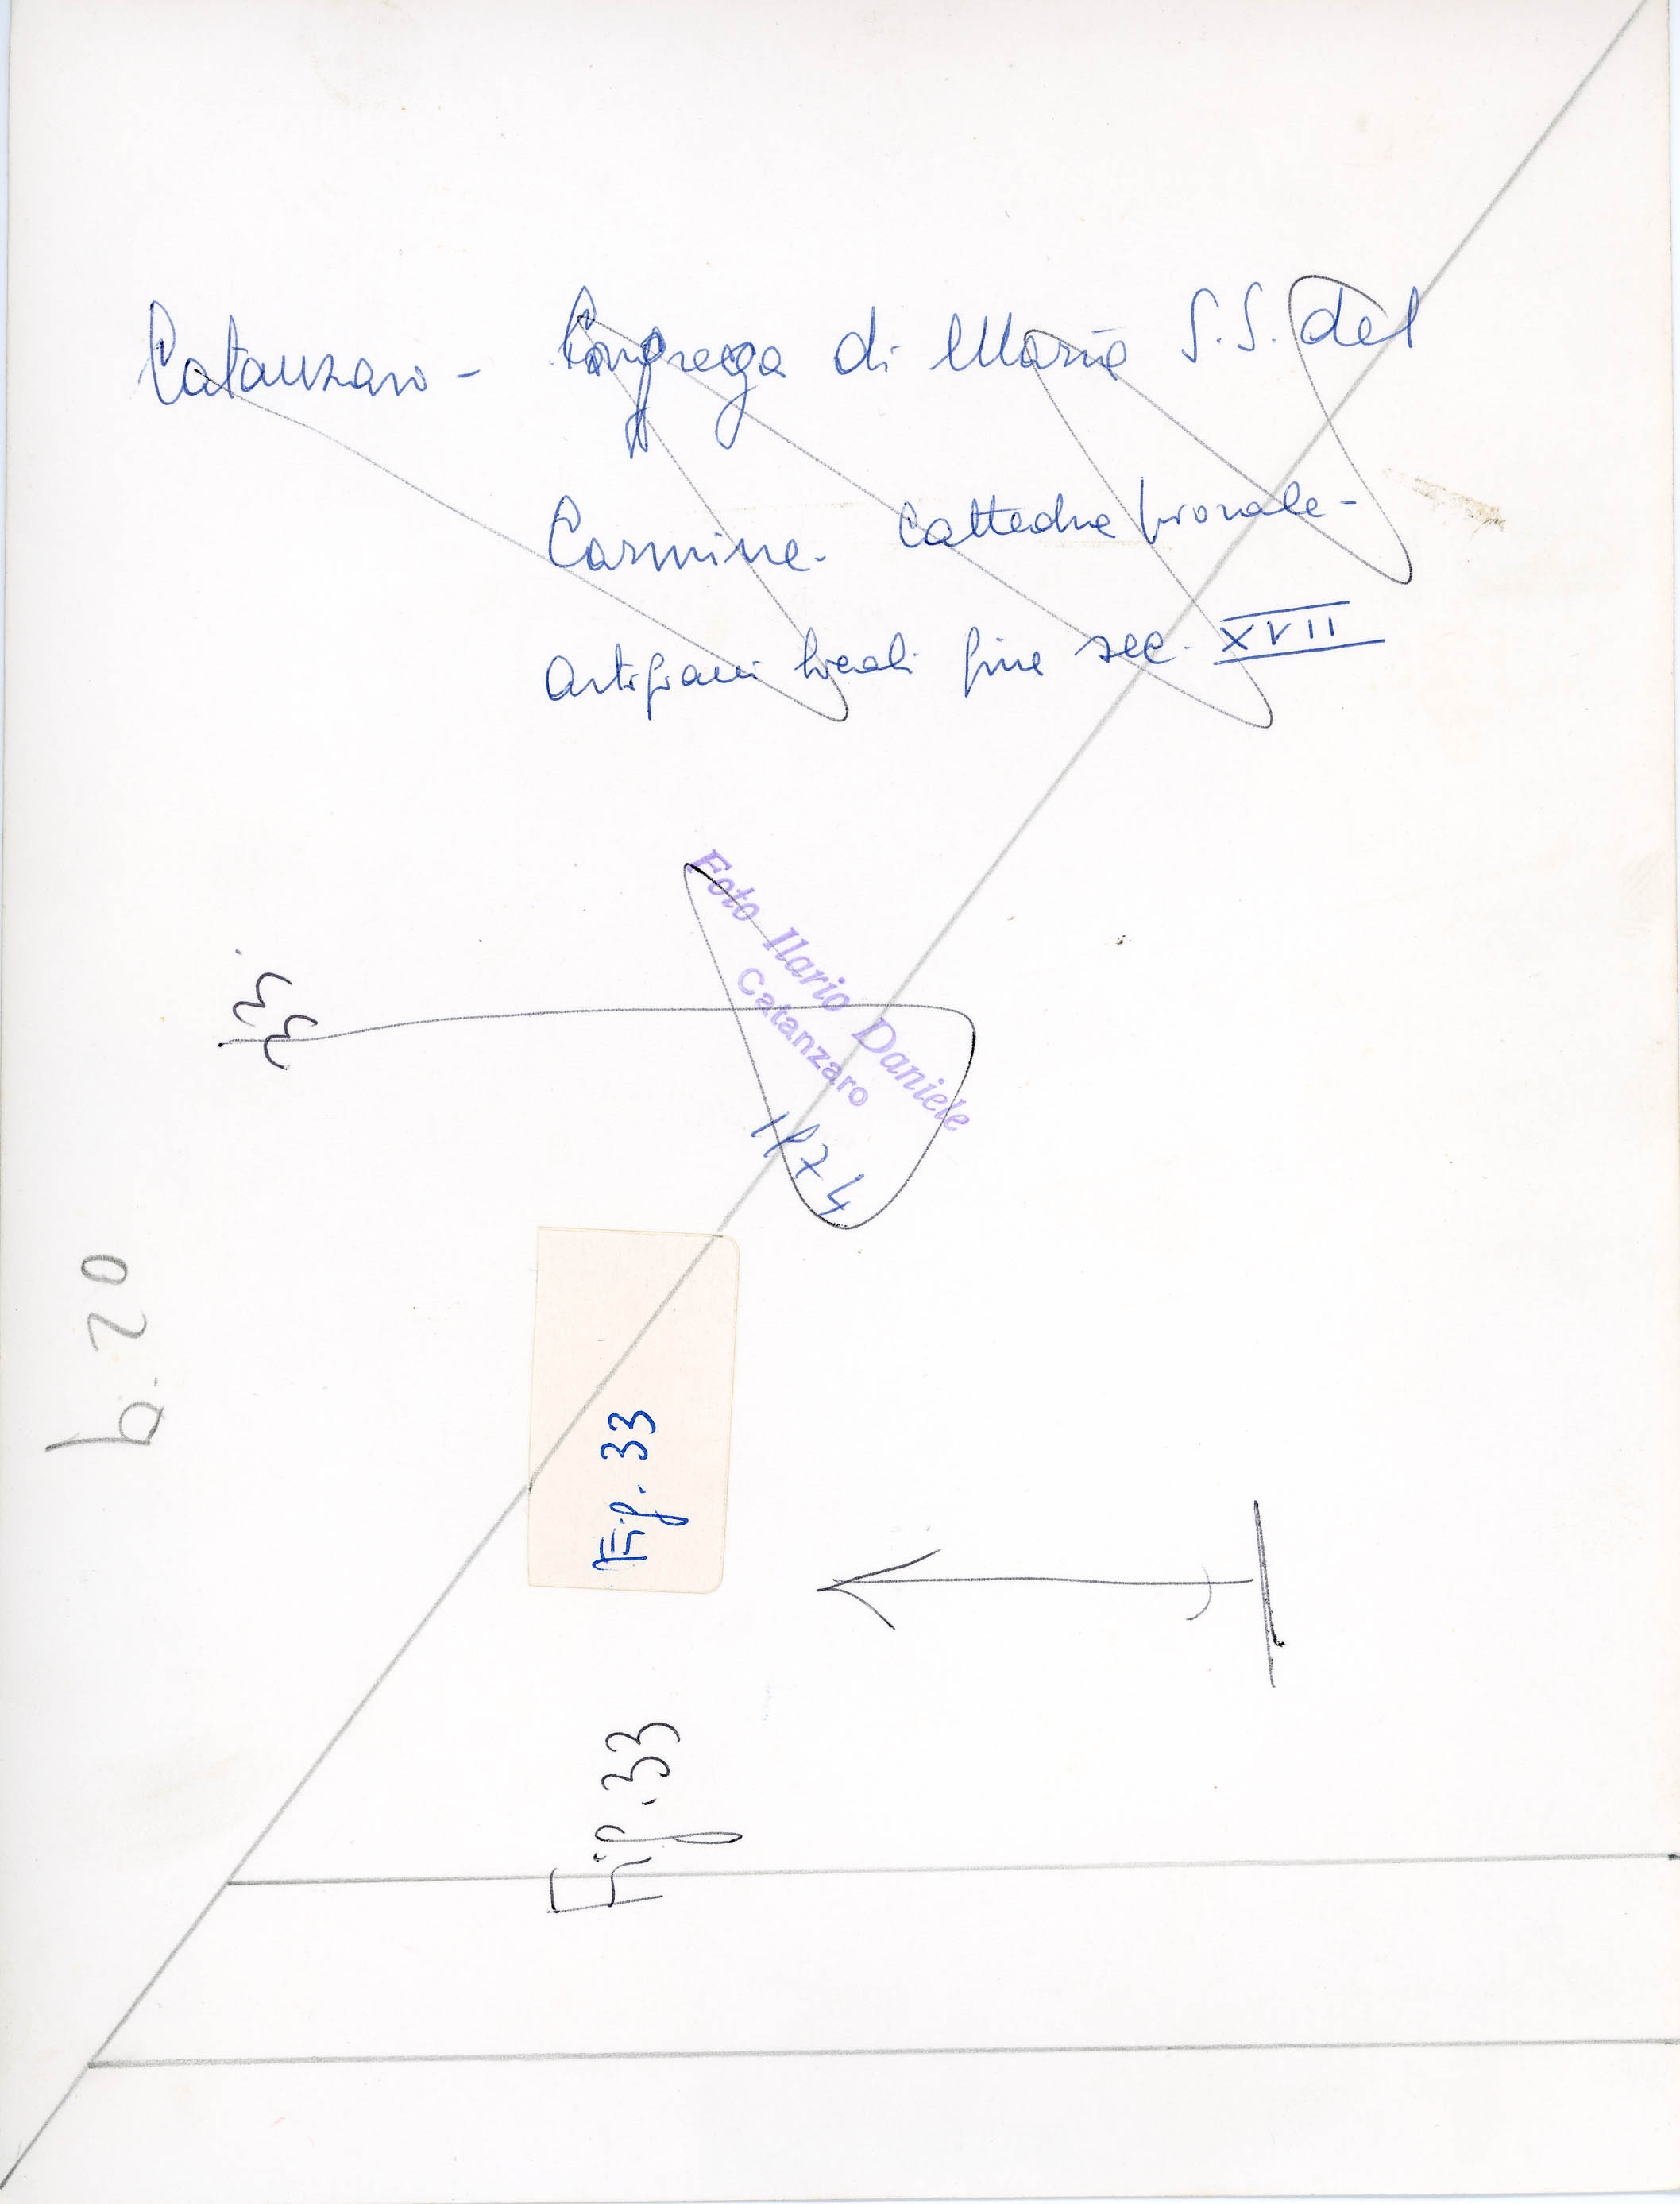 Catanzaro - Congrega di Maria S.S. del
Carmine. Cattedra priorale -
artigiani locali fine sec. XVII
Foto Ilario Daniele
Catanzaro
1974
33
b. 20
Fig. 33
Fig. 33